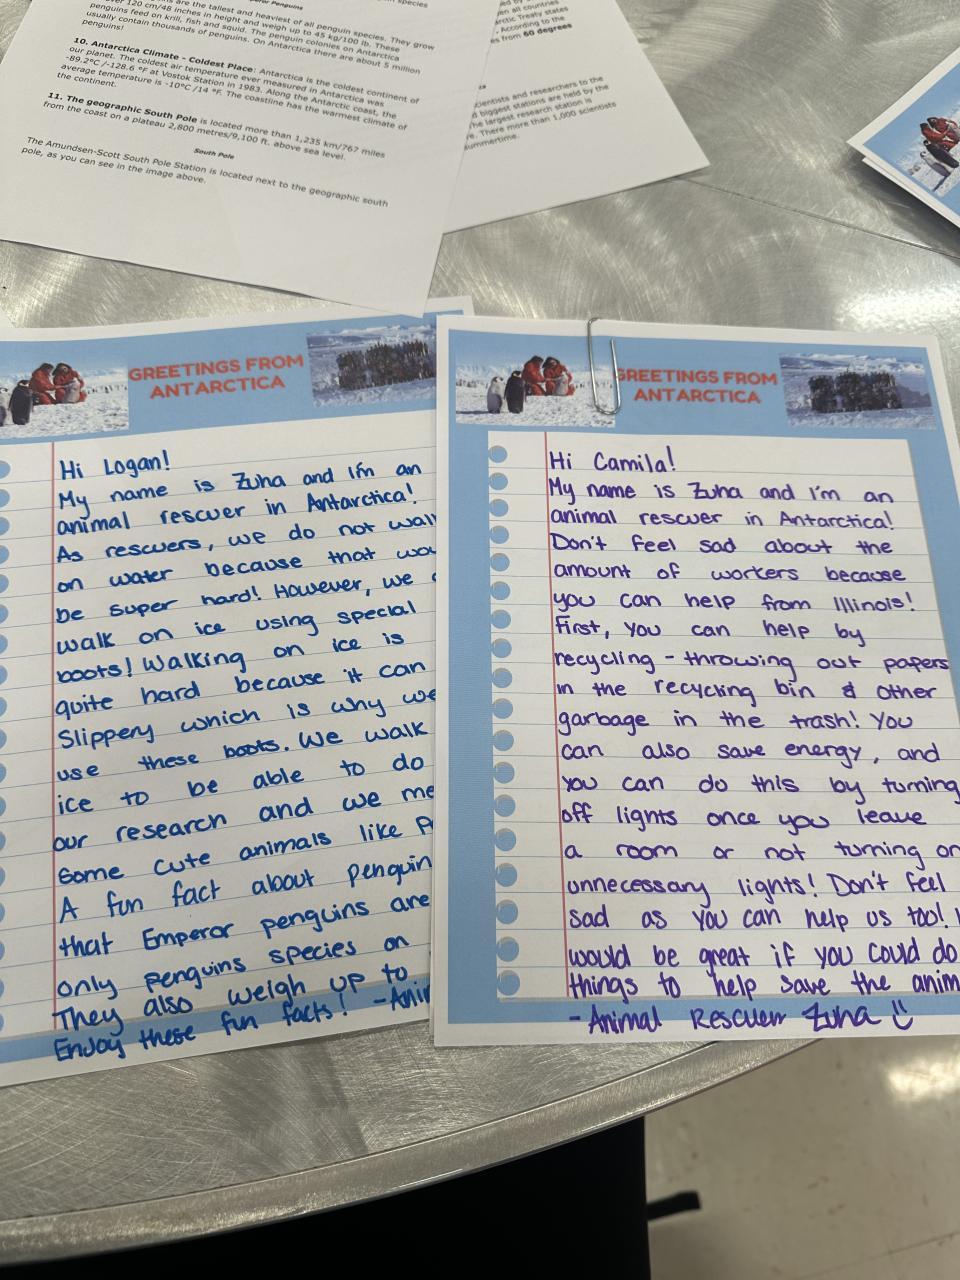 are the tallest and heaviest of all penguin species. They grow
over 120 cm/48 inches in height and weigh up to 45 kg/100 lb. These
penguins feed on krill, fish and squid. The penguin colonies on Antarctica
usually contain thousands of penguins. On Antarctica there are about 5 million
penguins!
10. Antarctica Climate - Coldest Place: Antarctica is the coldest continent of
our planet. The coldest air temperature ever measured in Antarctica was
-89.2°C /-128.6 °F at Vostok Station in 1983. Along the Antarctic coast, the
average temperature is -10°C /14 °F. The coastline has the warmest climate of
the continent.
11. The geographic South Pole is located more than 1,235 km/767 miles
from the coast on a plateau 2,800 metres/9,100 ft. above sea level.
South Pole
The Amundsen-Scott South Pole Station is located next to the geographic south
pole, as you can see in the image above.
all countries
Treaty states
According to the
from 60 degrees
scientists and researchers to the
biggest stations are held by the
largest research station is
There more than 1,000 scientists
summertime.
GREETINGS FROM
ANTARCTICA
Hi Logan!
My name is Zuha and I'm an
animal rescuer in Antarctica!
As rescuers, we do not wal
on water because that wou
be super hard! However, we
walk on ice using special
boots! Walking on ice is
quite hard because it can
Slippery which is why we
use these boots. We walk
ice to be able to do
our research and we me
some cute animals like
A fun fact about penguin
that Emperor penguins are
only penguins species on
They also weigh up to
Enjoy these fun facts! -Ani
GREETINGS FROM
ANTARCTICA
Hi Camila!
My name is Zuha and I'm an
animal rescuer in Antarctica!
Don't feel sad about the
amount of workers because
you can help from Illinois!
First, you can help by
recycling - throwing out papers
in the recycling bin & other
garbage in the trash! You
can also save energy, and
you can do this by turning
off lights once you leave
a room or not turning on
unnecessary lights! Don't feel
sad as you can help us too!
would be great if you could do
things to help save the anim
- Animal Rescuer Zuha